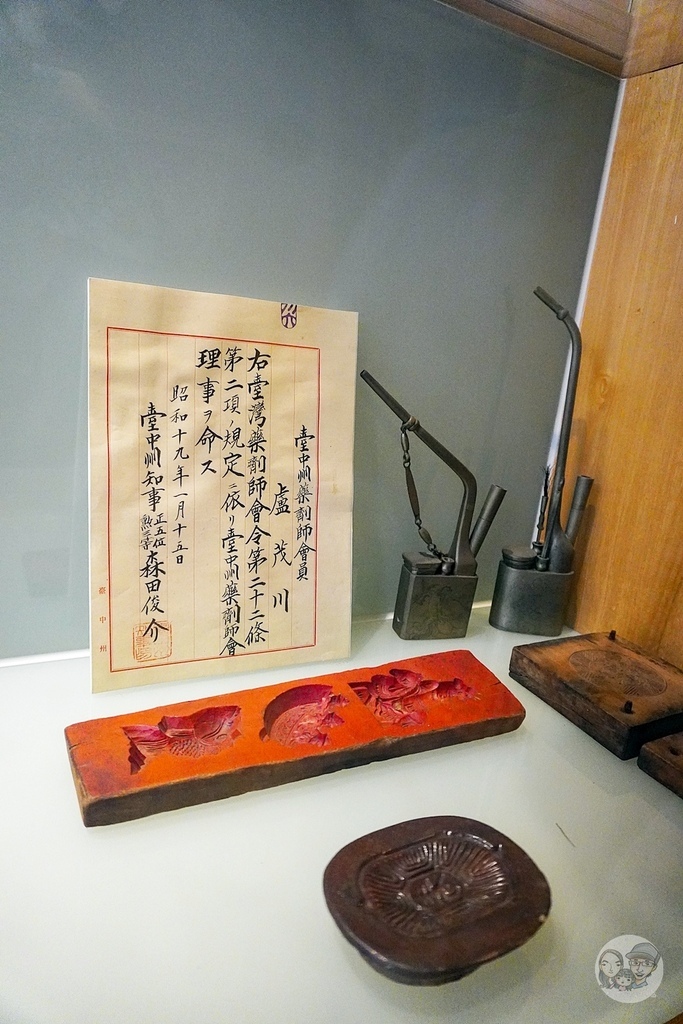 臺中州藥劑師會員
盧茂川
右臺灣藥劑師會令第二十二條
第二項ノ規定ニ依リ臺中州藥劑師會
理事ヲ命ス
昭和十九年一月十五日
臺中州知事正五位勲三等森田俊介
臺中州